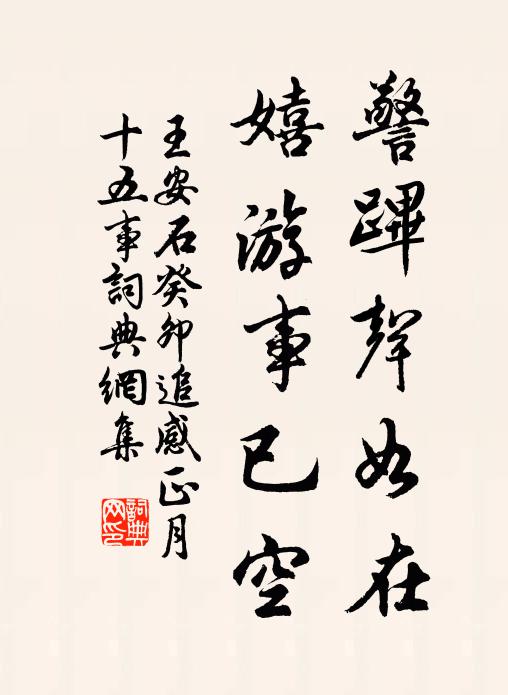 警蹕聲如在
嬉游事已空
王安石癸卯追感正月
十五事詞典網集
詞典
网印